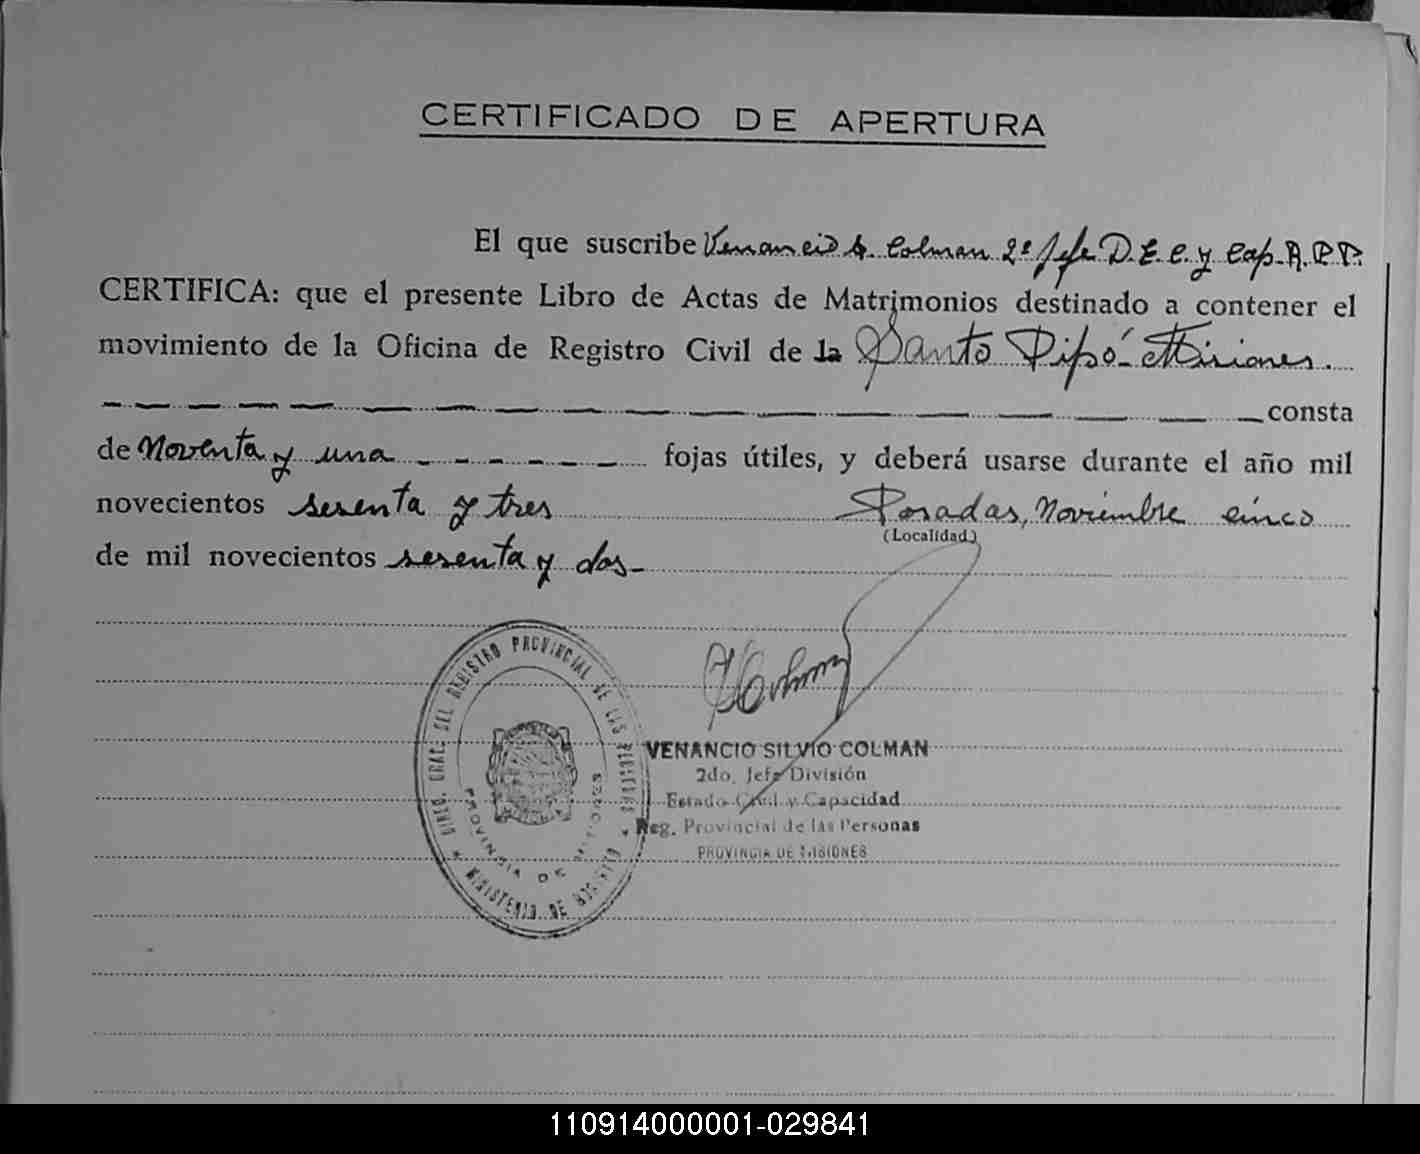 CERTIFICADO DE APERTURA
El que suscribe Venancio S. Colman 2º Jefe D. E. C. y Cap. R. P. P.
CERTIFICA: que el presente Libro de Actas de Matrimonios destinado a contener el
movimiento de la Oficina de Registro Civil de la Santo Pipó - Misiones.
consta
de Noventa y una - - - - - fojas útiles, y deberá usarse durante el año mil
novecientos sesenta y tres Posadas, Noviembre cinco
(Localidad)
de mil novecientos sesenta y dos -
DIREC. GRAL. DEL REGISTRO PROVINCIAL DE LAS PERSONAS
PROVINCIA DE MISIONES
MINISTERIO DE
VENANCIO SILVIO COLMAN
2do. Jefe División
Estado Civil y Capacidad
Reg. Provincial de las Personas
PROVINCIA DE MISIONES
110914000001-029841